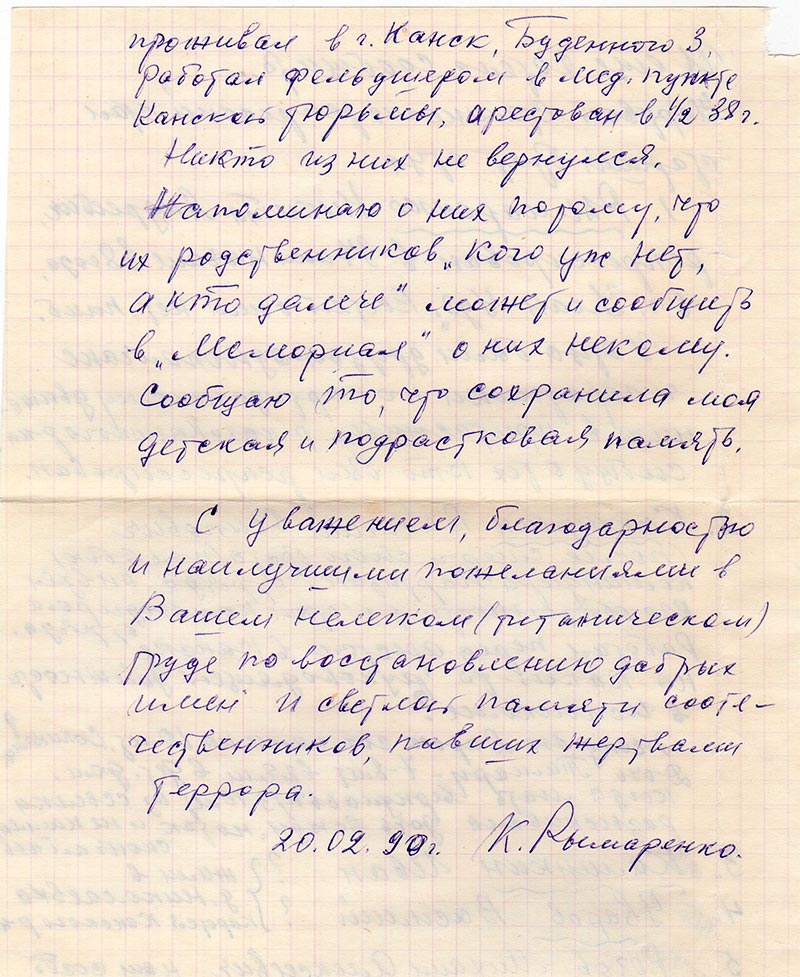 проживал в г. Канск, Буденного 3,
работал фельдшером в мед. пункте
Канской тюрьмы, арестован в 1/2 38 г.
Никто из них не вернулся.
Напоминаю о них потому, что
их родственников „Кого уж нет,
а кто далече" может и сообщить
в „Мемориал" о них некому.
Сообщаю то, что сохранила моя
детская и подрастковая память.
С уважением, благодарностью
и наилучшими пожеланиями в
Вашем нелегком (титаническом)
труде по восстановлению добрых
имен и светлой памяти сооте-
чественников, павших жертвами
террора.
20.02.90г. К. Рымаренко.